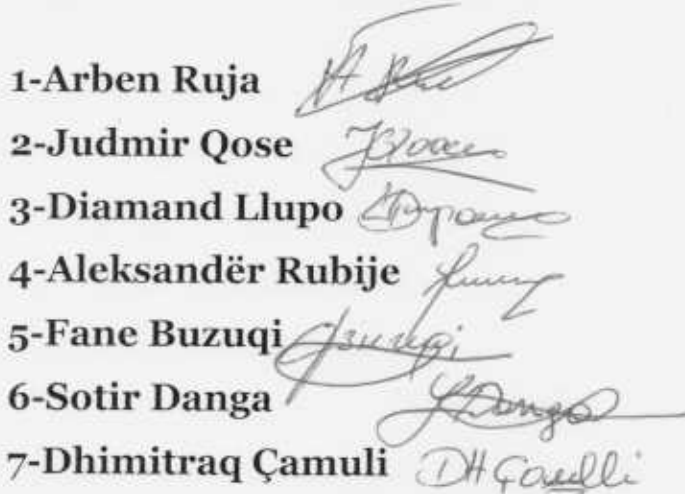 1-Arben Ruja
2-Judmir Qose
3-Diamand Llupo
4-Aleksandër Rubije
5-Fane Buzuqi
6-Sotir Danga SDanga
7-Dhimitraq Çamuli DH Çamulli